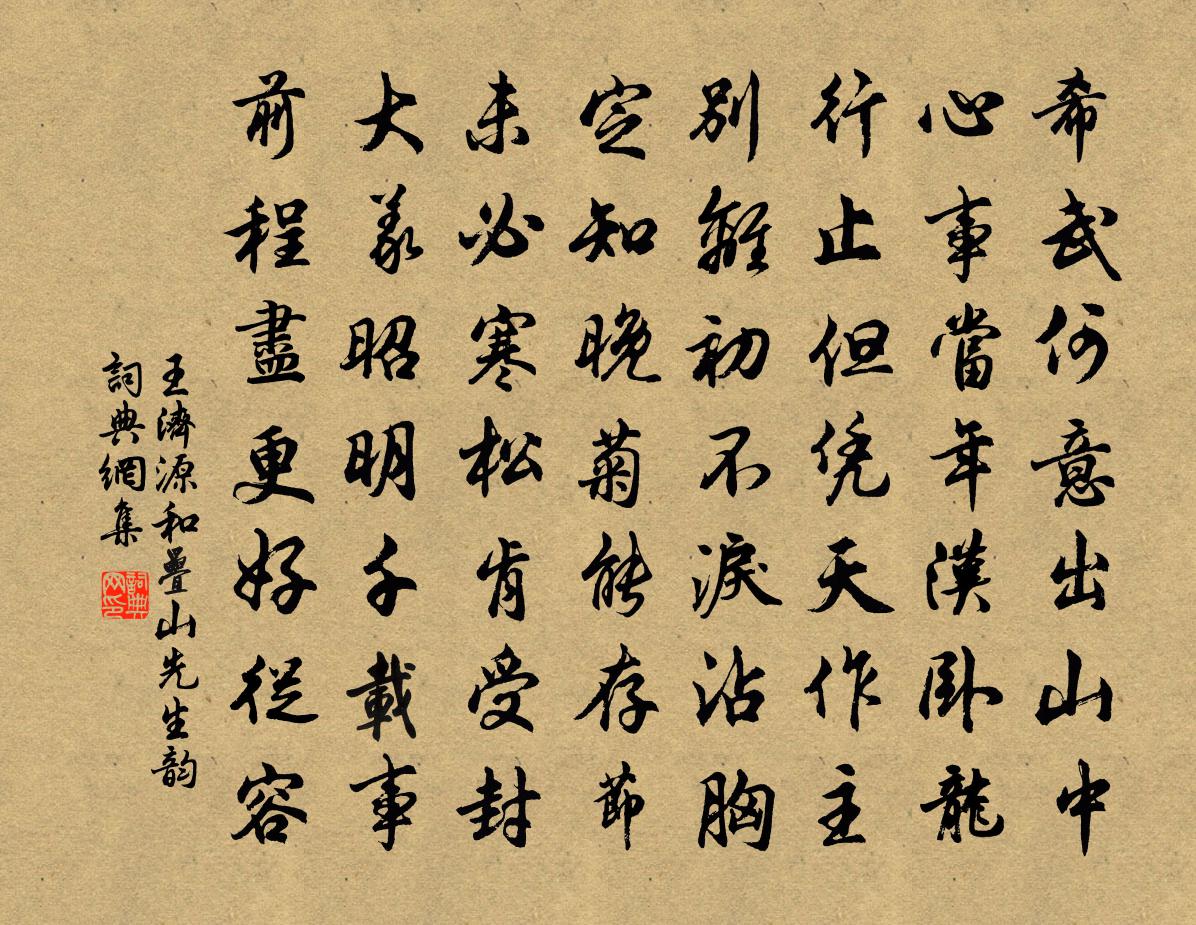 希武何意出山中
心事當年漢卧龍
行止但凭天作主
別離初不淚沾胸
定知晚菊能存節
未必寒松肯受封
大義昭明千載事
前程盡更好從容
王濟源和疊山先生韵
詞典網集
詞典网印